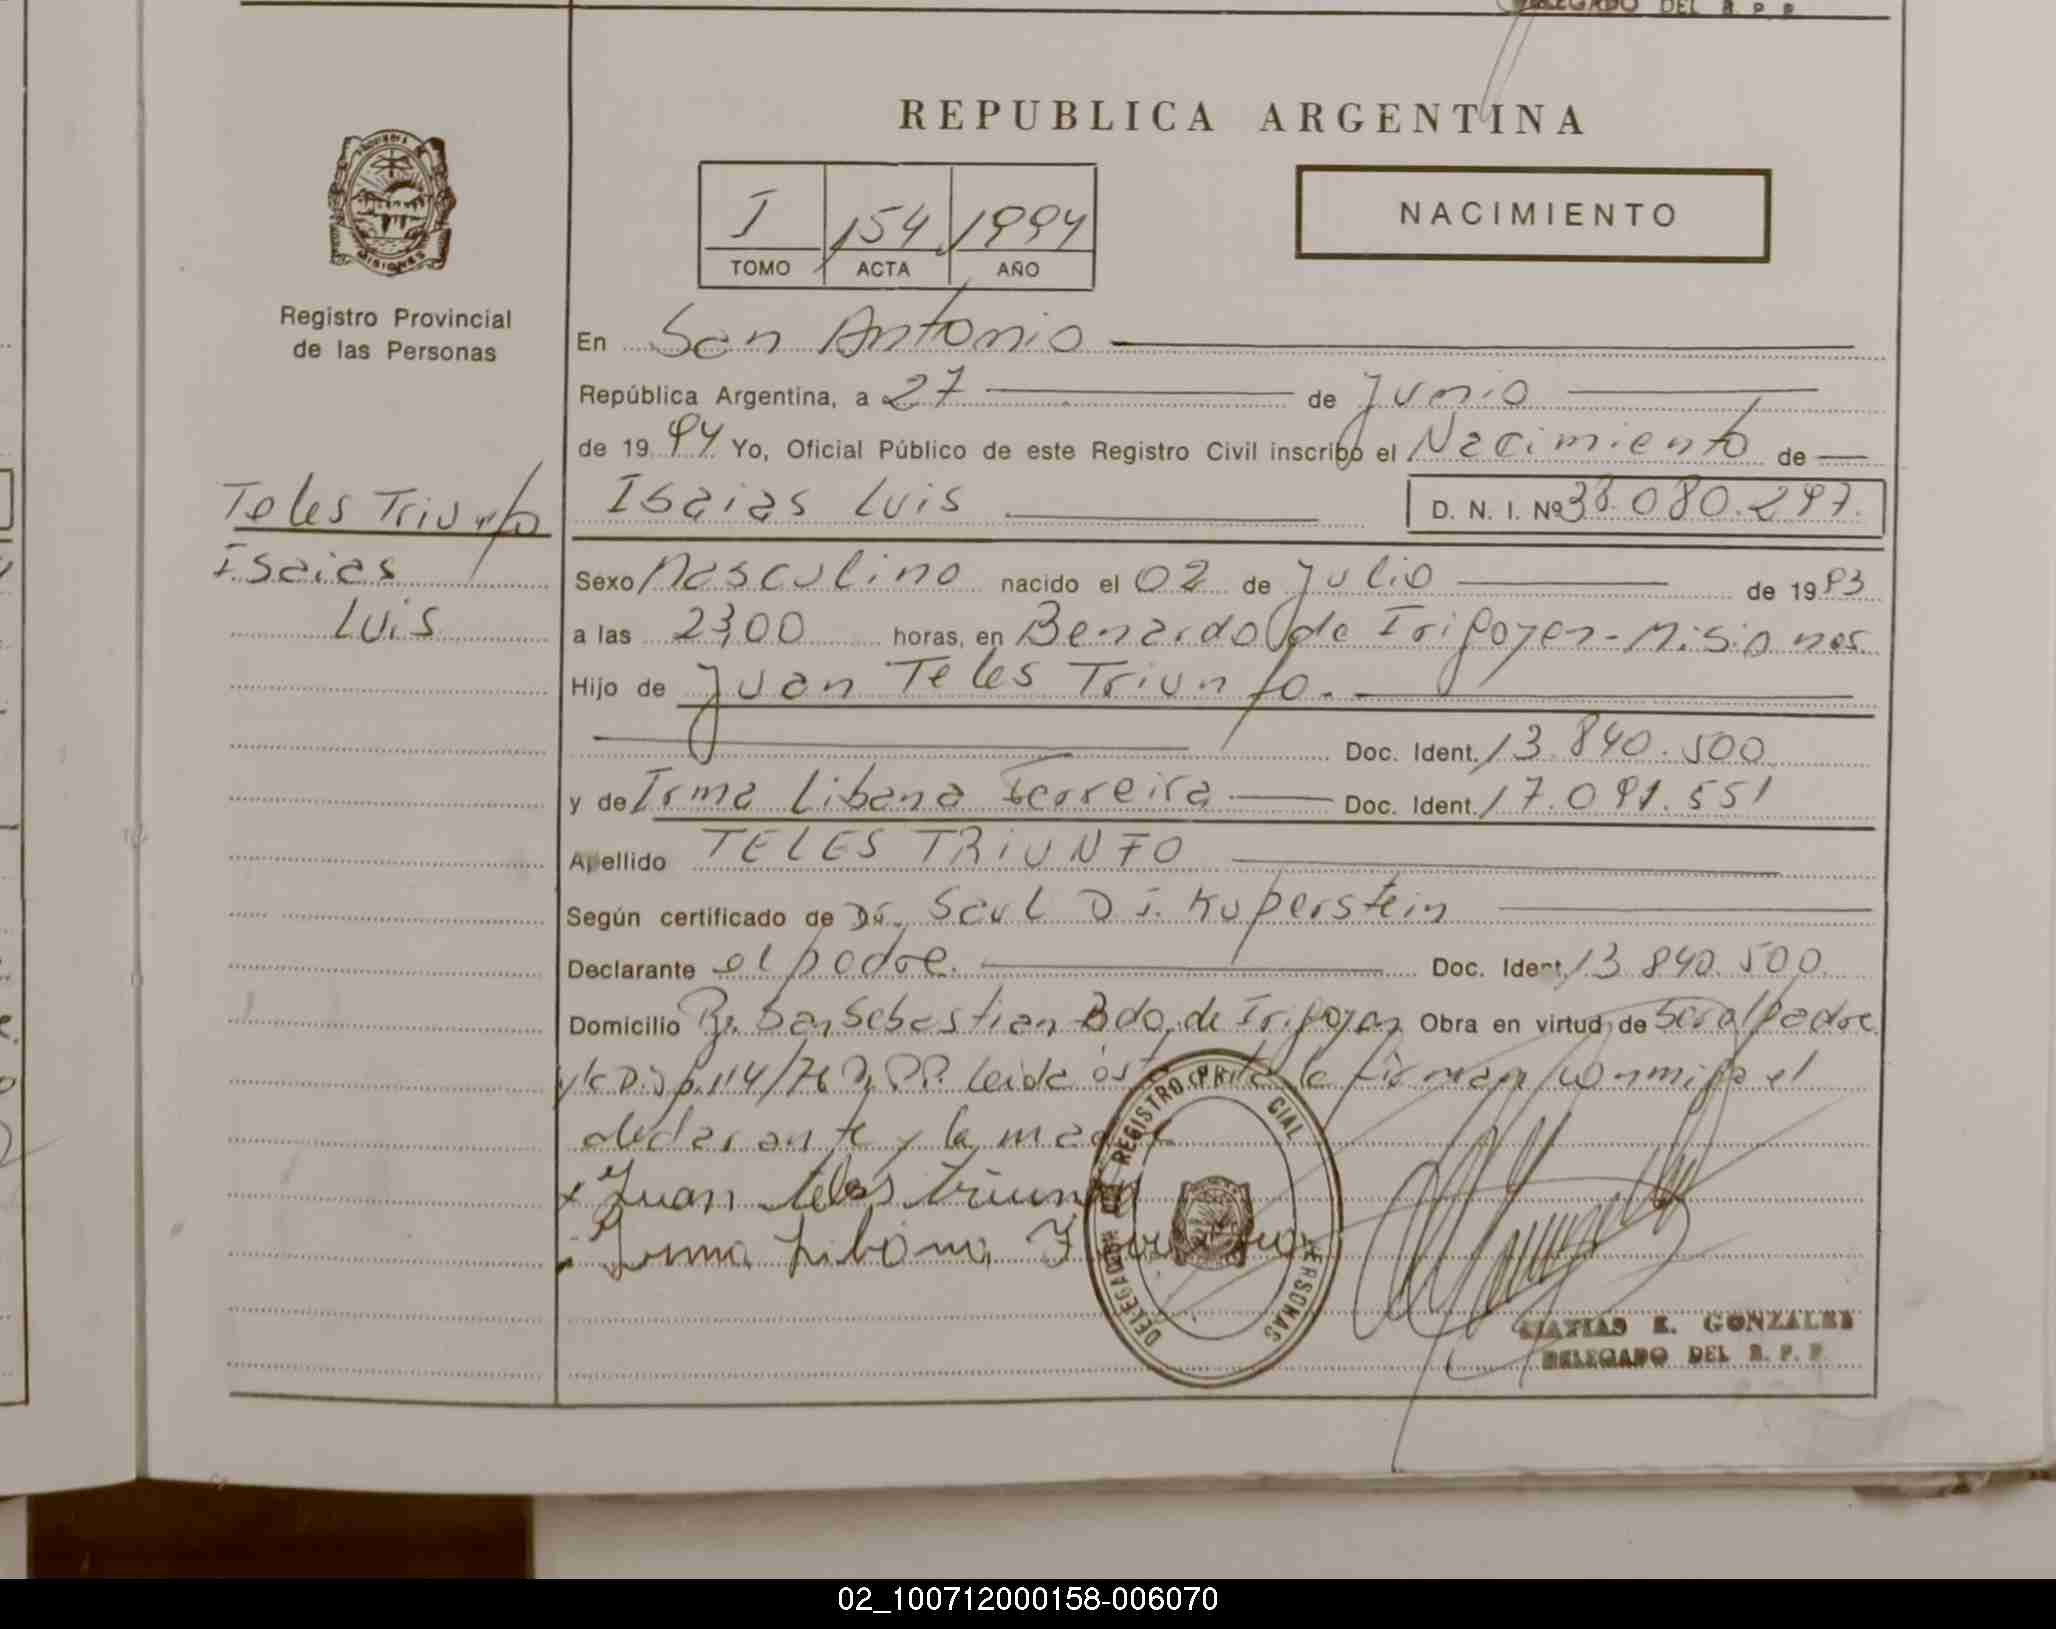 DELEGADO DEL R. P. P.
REPUBLICA ARGENTINA
PROVINCIA DE
MISIONES
I 154 1994
TOMO ACTA AÑO
NACIMIENTO
Registro Provincial
de las Personas
En San Antonio
República Argentina, a 27 de Junio
de 19 94 Yo, Oficial Público de este Registro Civil inscribo el Nacimiento de
Teles Triunfo
Isaias
Luis
Isaias Luis D. N. I. Nº 38.080.297.
Sexo Masculino nacido el 02 de Julio de 19 93
a las 23,00 horas, en Benardo de Irigoyen - Misiones.
Hijo de Juan Teles Triunfo.
Doc. Ident. 13.840.500
y de Irma Libana Ferreira Doc. Ident. 17.091.551
Apellido TELES TRIUNFO
Según certificado de Dr. Saul D I. Kuperstein
Declarante el padre. Doc. Ident. 13.840.500
Domicilio Bº San Sebastian Bdo. de Irigoyen Obra en virtud de ser el padre
y la Disp. 114/76 R.P.P. Leida esta la firman conmigo el
declarante y la madre
x Juan teles triunfo
Irma Libana Ferreira
DELEGACION DEL REGISTRO PROVINCIAL PERSONAS
MATIAS E. GONZALEZ
DELEGADO DEL R. P. P.
02_100712000158-006070